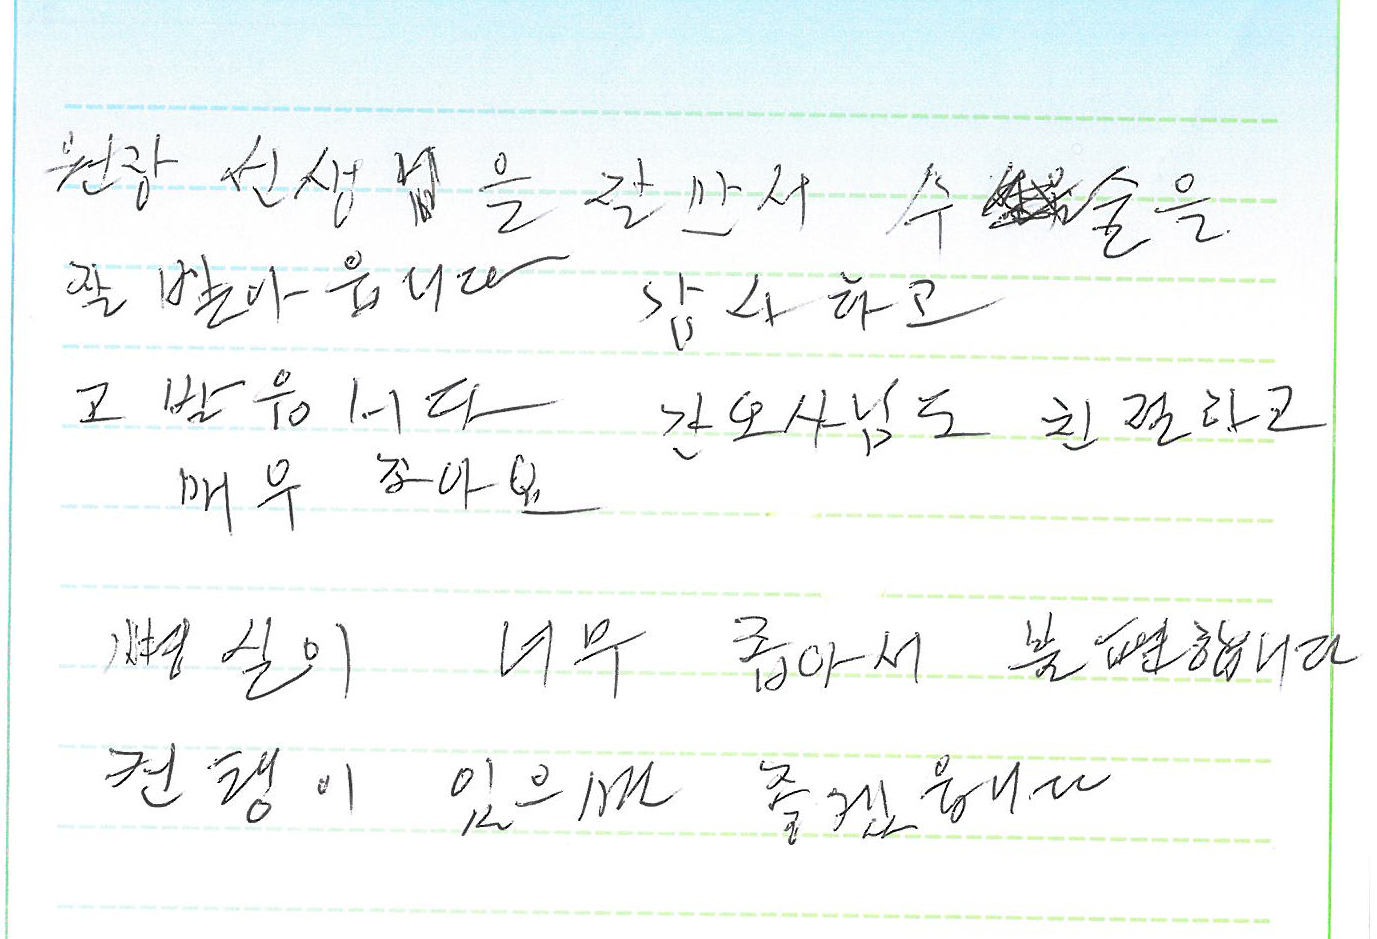 원장 선생님을 잘 만서 수술을
잘 발아읍니다 감사하고
고밥웁니다 간오사님도 친절하고
매우 조아요
병실이 너무 좁아서 불편합니다
컨텡이 있으면 졸겠읍니다